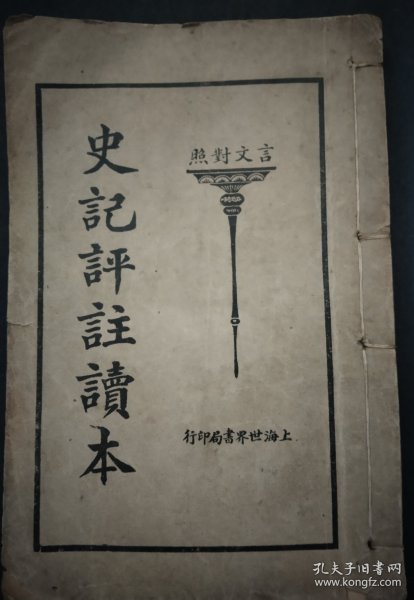 言文對照
史記評註讀本
上海世界書局印行
孔夫子旧书网
www.kongfz.com